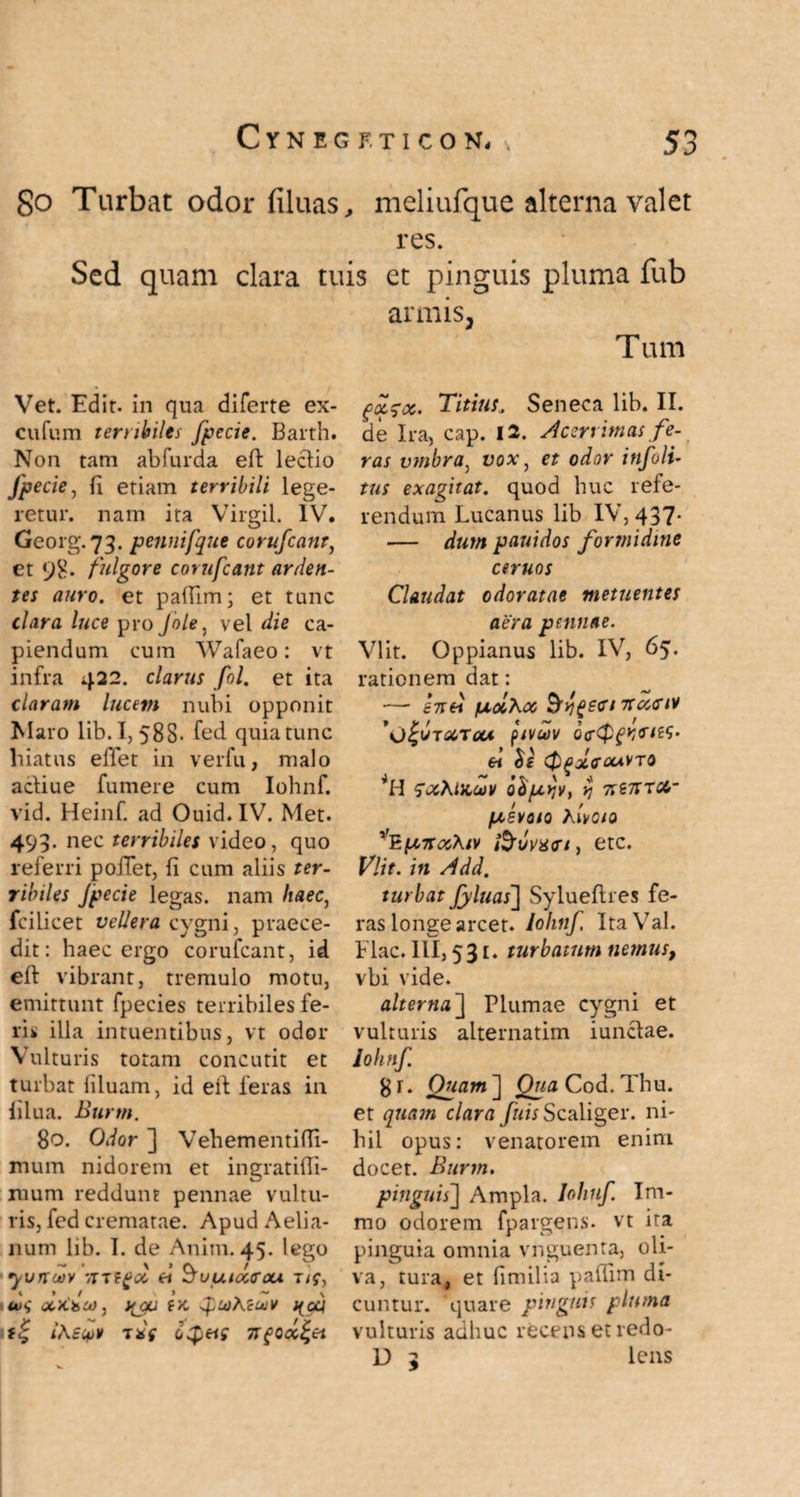 CYNEGETICON. 53
80 Turbat odor ſiluas, meliuſque alterna valet
res.
Sed quam clara tuis et pinguis pluma ſub
armis,
Tum
Vet. Edit. in qua diſerte ex-
cuſum terribiles ſpecie. Barth.
Non tam abſurda eſt lectio
ſpecie, ſi etiam terribili lege-
retur. nam ita Virgil. IV.
Georg. 73. penniſque coruſcant,
et 98. fulgore coruſcant arden-
tes auro. et paſſim; et tunc
clara luce pro ſole, vel die ca-
piendum cum Waſaeo: vt
infra 422. clarus ſol. et ita
claram lucem nubi opponit
Maro lib. I, 588. ſed quia tunc
hiatus eſſet in verſu, malo
actiue ſumere cum Iohnſ.
vid. Heinſ. ad Ouid. IV. Met.
493. nec terribiles video, quo
referri poſſet, ſi cum aliis ter-
ribiles ſpecie legas. nam haec,
ſcilicet vellera cygni, praece-
dit: haec ergo coruſcant, id
eſt vibrant, tremulo motu,
emittunt ſpecies terribiles fe-
ris illa intuentibus, vt odor
Vulturis totam concutit et
turbat ſiluam, id eſt feras in
ſilua. Burm.
80. Odor ] Vehementiſſi-
mum nidorem et ingratiſſi-
mum reddunt pennae vultu-
ris, ſed crematae. Apud Aelia-
num lib. I. de Anim. 45. lego
γυπῶν πτερὰ εἰ θυμιάσαι τις,
ὡς ἀκούω, καὶ ἐκ φωλεῶν καὶ
ἐξ ἰλεῶν τοὺς ὄφεις προάξει
ρᾷστα. Titius. Seneca lib. II.
de Ira, cap. 12. Acerrimas fe-
ras vmbra, vox, et odor inſoli-
tus exagitat. quod huc refe-
rendum Lucanus lib IV, 437.
— dum pauidos formidine
ceruos
Claudat odoratae metuentes
aëra pennae.
Vlit. Oppianus lib. IV, 65.
rationem dat:
— ἐπεὶ μάλα θήρεσι πᾶσιν
Ὀξύταται ρινῶν ὀσφρήσιες·
εἰ δὲ φρὰσαιντο
Ἢ σταλίκων ὀδμὴν, ἢ πεπτα-
μένοιο λίνοιο
Ἔμπαλιν ἰθύνουσι, etc.
Vlit. in Add.
turbat ſyluas] Sylueſtres fe-
ras longe arcet. Iohnſ. Ita Val.
Flac. III, 531. turbatum nemus,
vbi vide.
alterna] Plumae cygni et
vulturis alternatim iunctae.
Iohnſ.
81. Quam] Qua Cod. Thu.
et quam clara ſuis Scaliger. ni-
hil opus: venatorem enim
docet. Burm.
pinguis] Ampla. Iohnſ. Im-
mo odorem ſpargens. vt ita
pinguia omnia vnguenta, oli-
va, tura, et ſimilia paſſim di-
cuntur. quare pinguis pluma
vulturis adhuc recens et redo-
D 3 lens